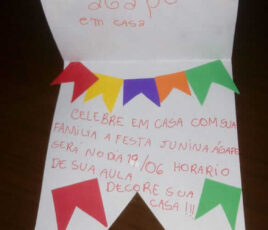 ágape
em casa
CELEBRE EM CASA COM SUA
FAMÍLIA A FESTA JUNINA ÁGAPE
SERÁ NO DIA 19/06 HORARIO
DE SUA AULA
DECORE SUA
CASA!!!